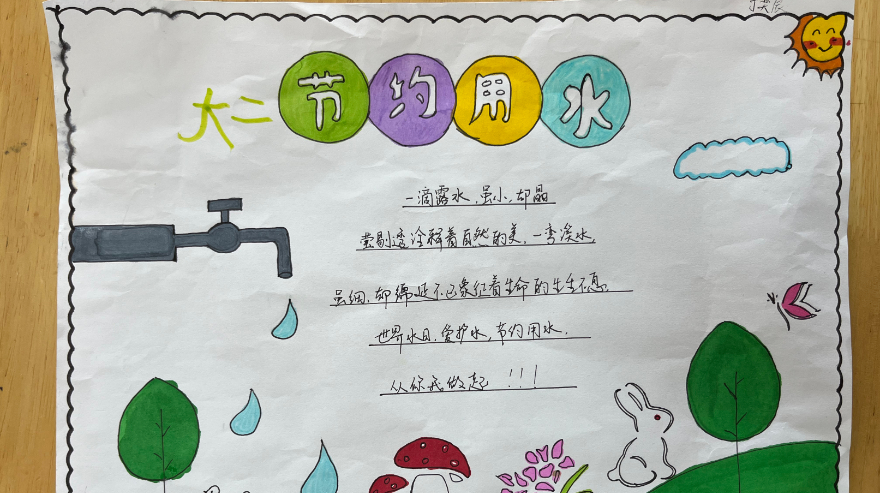 大二 节约用水
一滴露水,虽小,却晶
莹剔透诠释着自然的美,一弯溪水,
虽细,却绵延不已象征着生命的生生不息。
世界水日,爱护水,节约用水,
从你我做起!!!